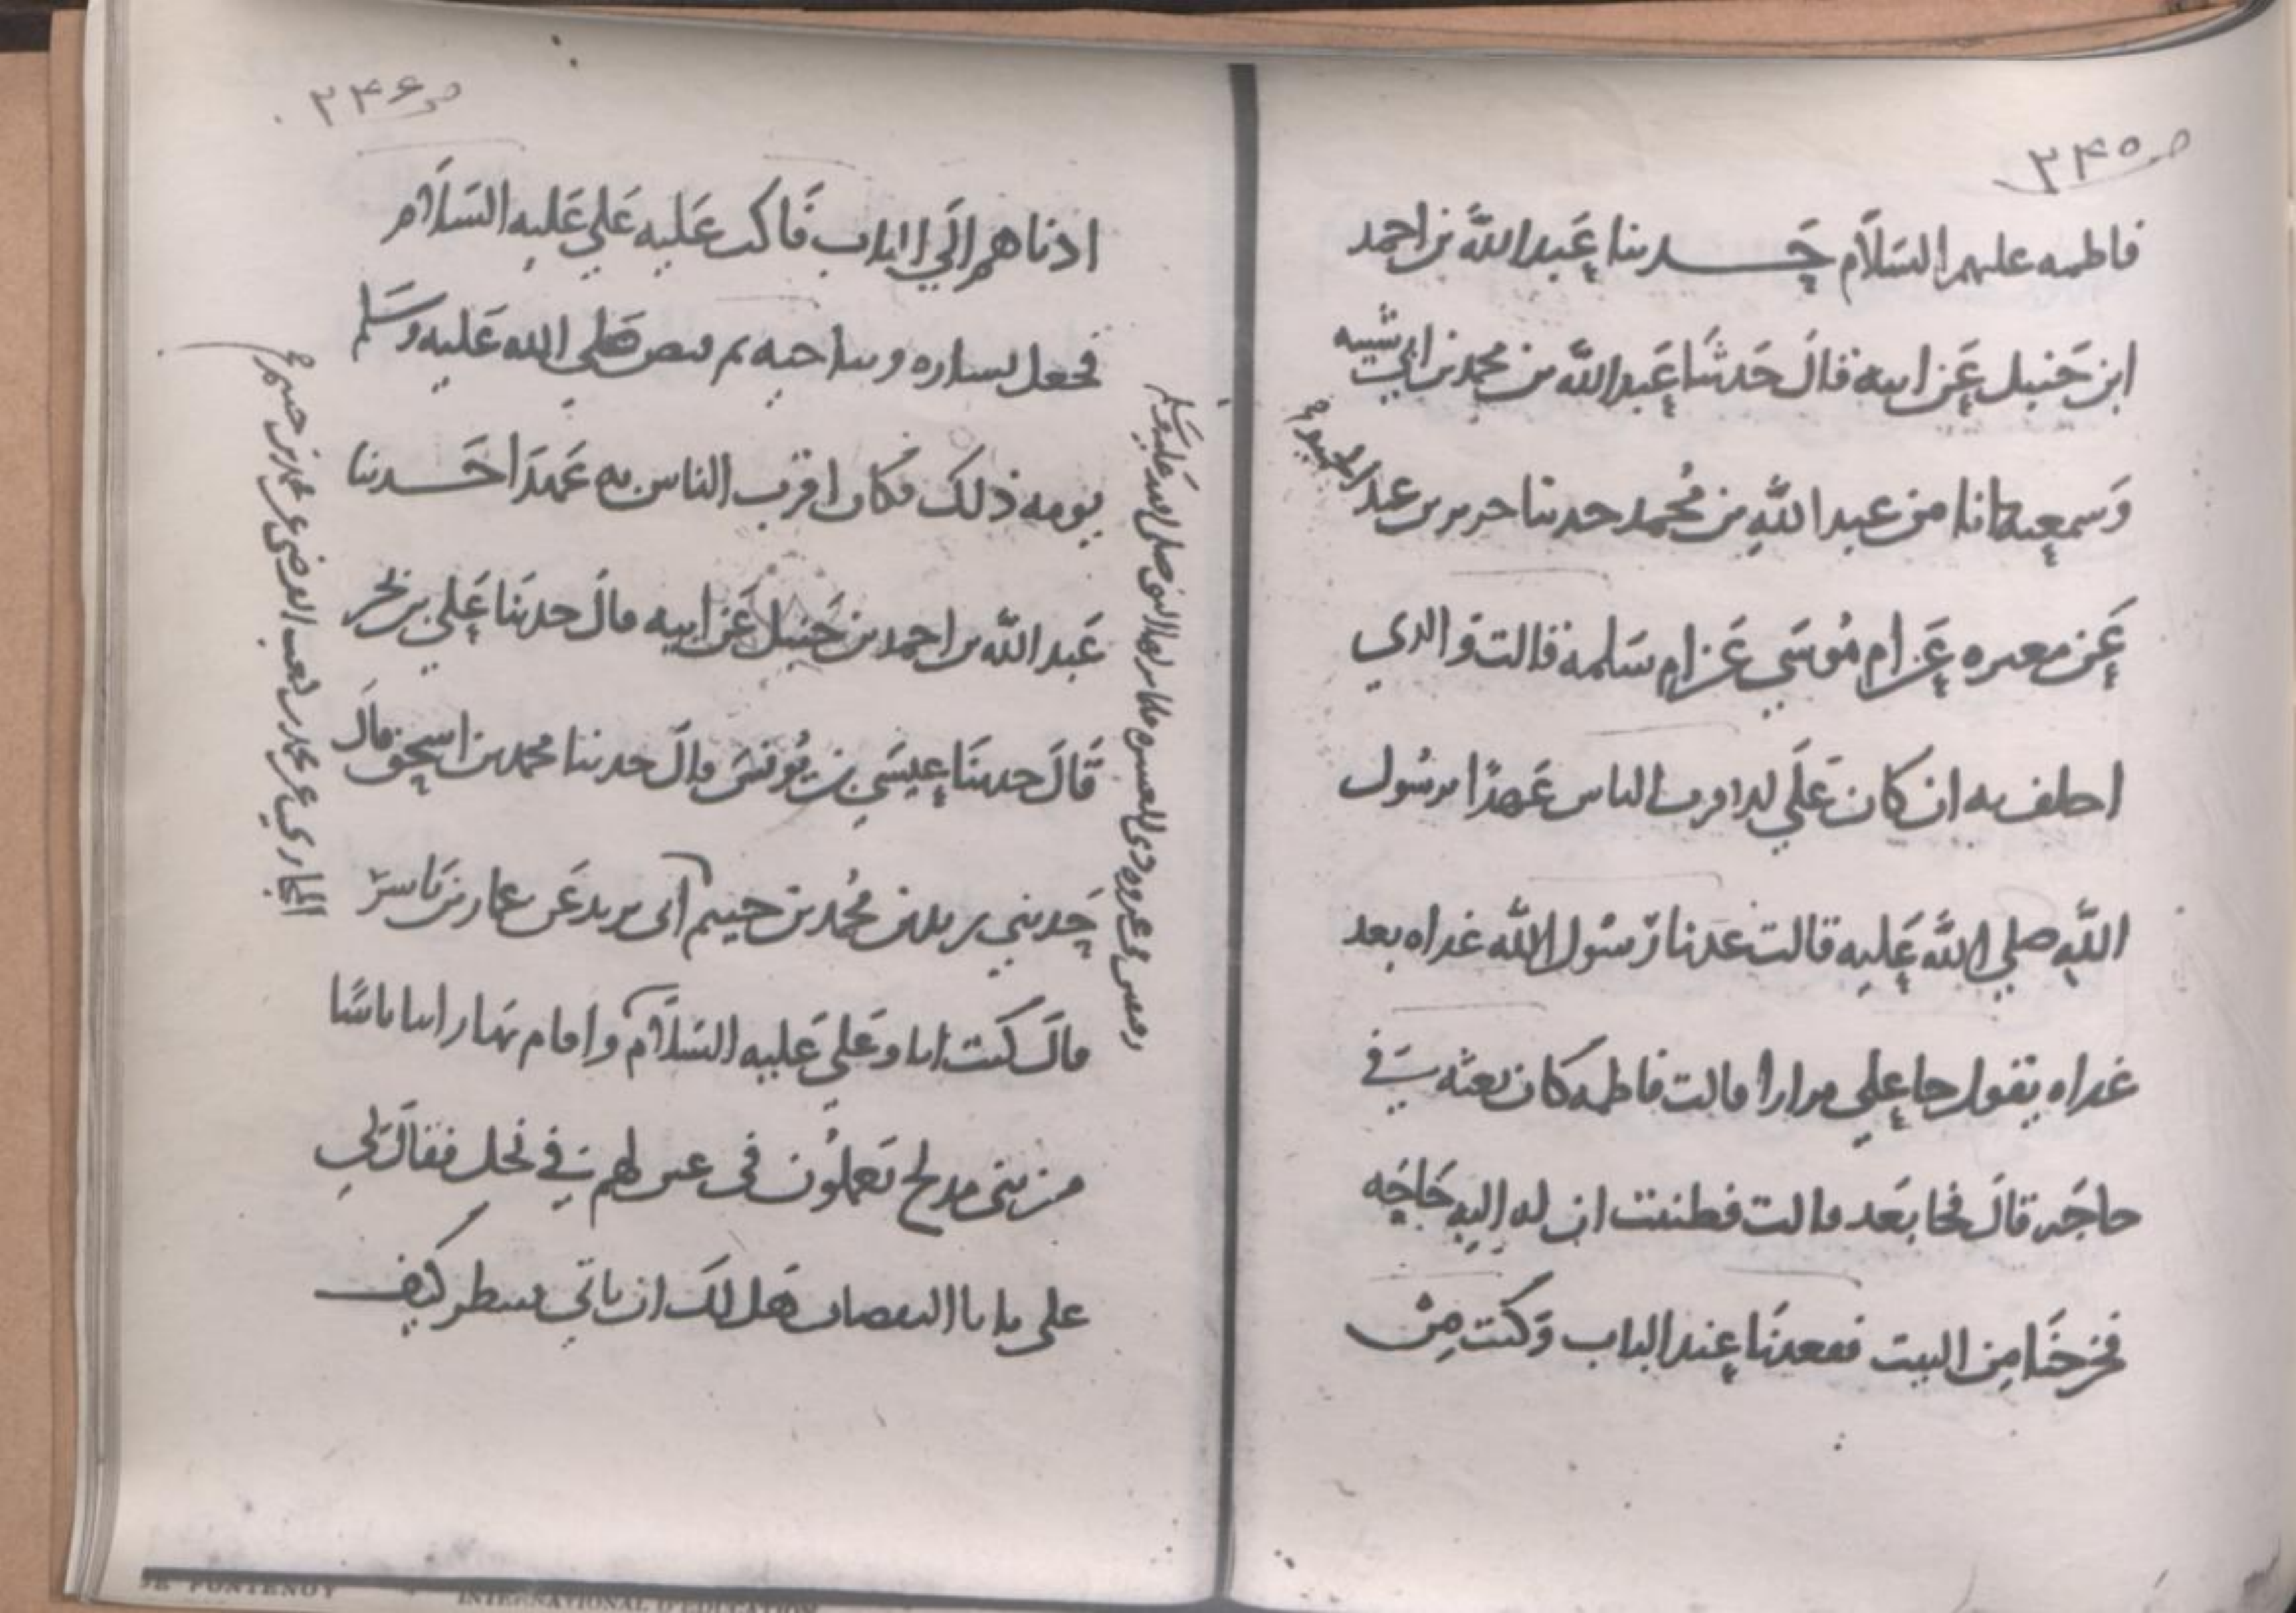 ص ٢٤٥
فاطمه عليهم السلام حدثنا عبد الله بن احمد
ابن حنبل عن ابيه قال حدثنا عبد الله بن محمد بن ابي شيبه
وسمعته انا من عبد الله بن محمد حدثنا جرير بن عبد الحميد
عن مغيره عن ام موسى عن ام سلمه قالت والذي
احلف به ان كان علي لاقرب الناس عهدا برسول
الله صلى الله عليه قالت عدنا رسول الله غداه بعد
غداه يقول جا علي مرارا قالت فاطمه كان بعثه في
حاجه قال فجا بعد قالت فظننت ان له اليه حاجه
فخرجنا من البيت فقعدنا عند الباب وكنت من
ص ٢٤٦
ادناهم الى الباب فاكب عليه علي عليه السلام
فجعل يساره ويناجيه ثم قبض صلى الله عليه وسلم
يومه ذلك فكان اقرب الناس به عهدا حدثنا
عبد الله بن احمد بن حنبل عن ابيه قال حدثنا علي بن بحر
قال حدثنا عيسى بن يونس قال حدثنا محمد بن اسحق قال
حدثني يزيد بن محمد بن خيثم ابي يزيد عن عمار بن ياسر
قال كنت انا وعلي عليه السلام
من بني مدلج يعملون في عين لهم في نخل فقال لي
علي يا با اليقظان هل لك ان ناتي فننظر كيف